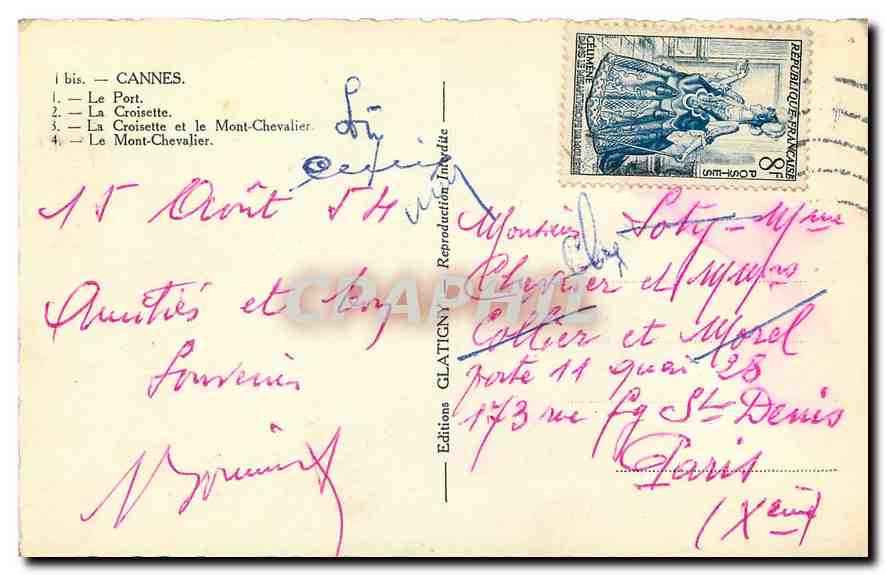 1 bis. — CANNES.
1. — Le Port.
2. — La Croisette.
3. — La Croisette et le Mont-Chevalier.
4. — Le Mont-Chevalier.
15 Août 54
Amitiés et bon
Souvenirs
Editions GLATIGNY — Reproduction Interdite
RÉPUBLIQUE·FRANÇAISE
8F
POSTES
CÉLIMÈNE
CPARAMA
Monsieur Soty — Mme
et
Collier et Morel
porte 11 quai 28
173 rue fg St Denis
Paris
(Xème)